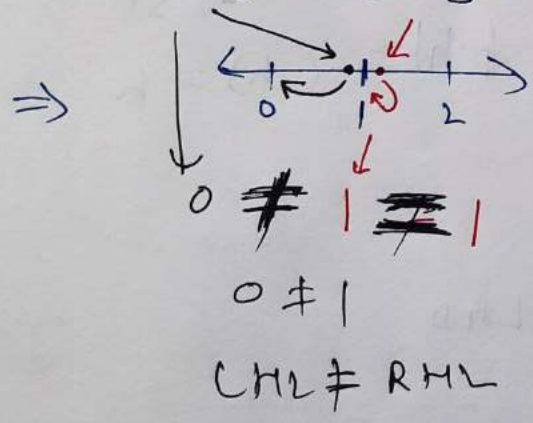 ⇒ 0 1 2
0 ≠ 1 = 1
0 ≠ 1
LHL ≠ RHL